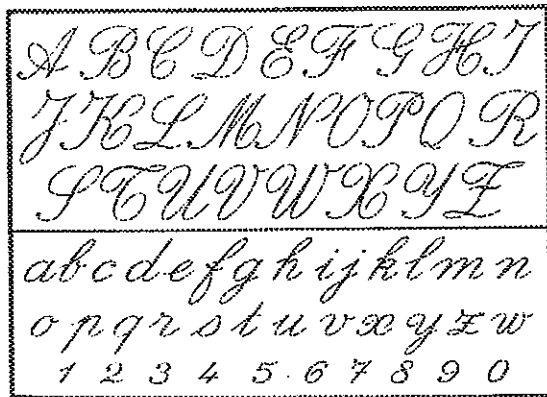 A B C D E F G H I
J K L M N O P Q R
S T U V W X Y Z
a b c d e f g h i j k l m n
o p q r s t u v x y z w
1 2 3 4 5 . 6 7 8 9 0